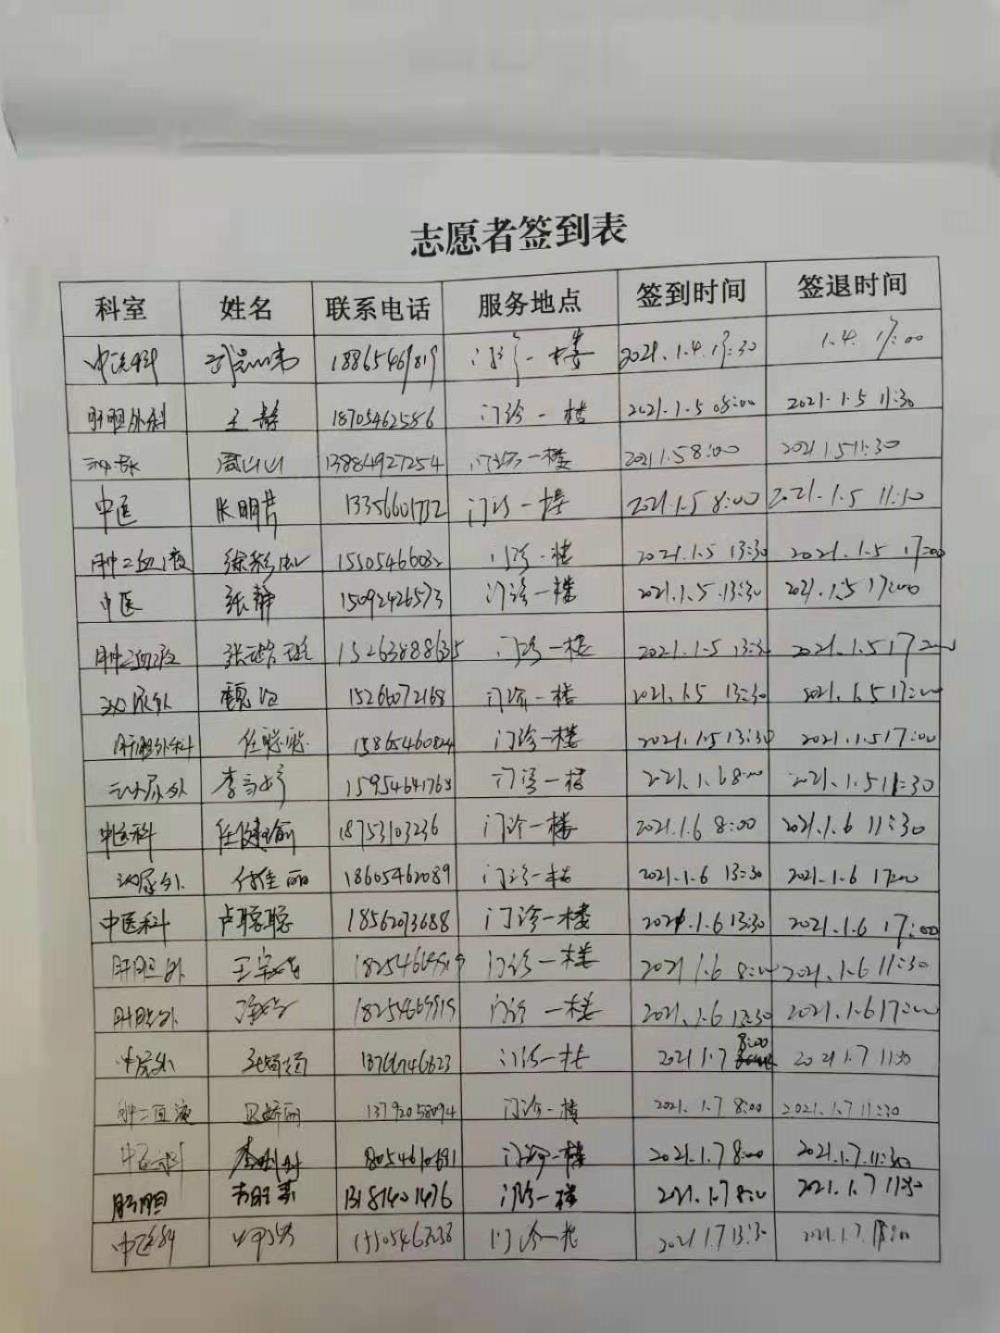 志愿者签到表
科室 姓名 联系电话 服务地点 签到时间 签退时间
中医科 门诊一楼 2021.1.4. 13:30 1.4. 17:00
肝胆外科 王静 18705462586 门诊一楼 2021.1.5 08:00 2021.1.5 11:30
周山山 13884927254 门诊一楼 2021 1.5 8:00 2021 1.5 11:30
中医 13356601732 门诊一楼 2021.1.5 8:00 2021.1.5 11:30
肿二血液 15505466082 门诊一楼 2021.1.5 13:30 2021.1.5 17:00
中医 张静 15092426573 门诊一楼 2021.1.5.13:30 2021.1.5 17:00
肿二血液 15263888635 门诊一楼 2021.1.5 13:30 2021.1.5 17:00
泌尿外 15266072168 门诊一楼 2021.1.5 13:30 2021.1.5 17:00
肝胆外科 任聪聪 15865460824 门诊一楼 2021.1.5 13:30 2021.1.5 17:00
泌尿外 15954641763 门诊一楼 2021.1.6 8:00 2021.1.5 11:30
中医科 任健瑜 18753103236 门诊一楼 2021.1.6 8:00 2021.1.6 11:30
泌尿外 付佳丽 18605462089 门诊一楼 2021.1.6 13:30 2021.1.6 17:00
中医科 卢聪聪 18562073688 门诊一楼 2021.1.6 13:30 2021.1.6 17:00
肝胆外 门诊一楼 2021 1.6 8:00 2021.1.6 11:30
肝胆外 18254669919 门诊一楼 2021.1.6 13:30 2021.1.6 17:00
泌尿外 门诊一楼 2021 1.7 8:00 2021.1.7 11:30
肿二血液 13792058094 门诊一楼 2021.1.7 8:00 2021.1.7 11:30
中医科 门诊一楼 2021.1.7 8:00 2021.1.7.11:30
肝胆 13181401476 门诊一楼 2021.1.7 8:00 2021.1.7 11:30
中医科 15505463238 门诊一楼 2021 1.7 13:30 2021.1.7.